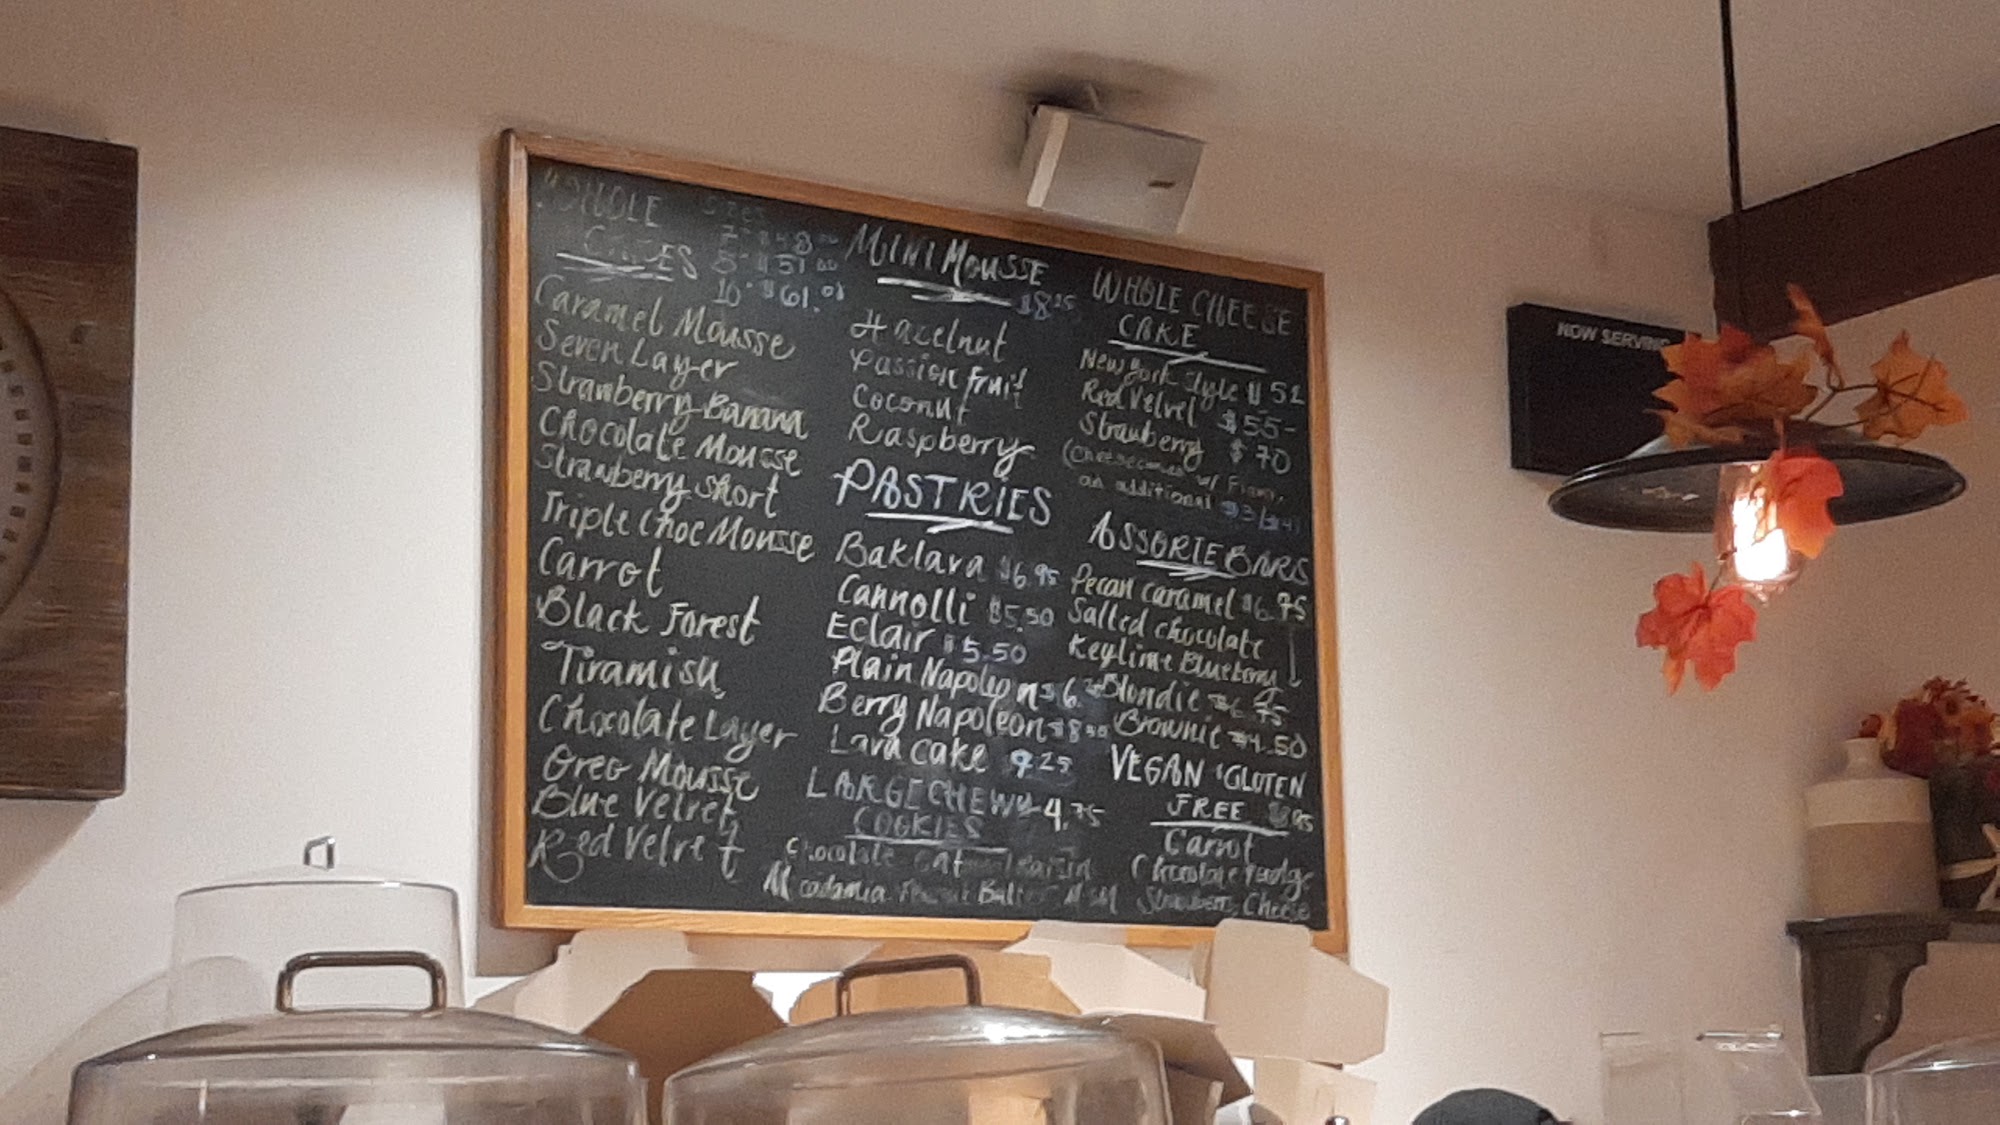 WHOLE
CAKES
Sizes
7" $48.00
8" $51.00
10" $61.00
Caramel Mousse
Seven Layer
Strawberry Banana
Chocolate Mousse
Strawberry short
Triple Choc Mousse
Carrot
Black Forest
Tiramisu
Chocolate Layer
Oreo Mousse
Blue Velvet
Red Velvet
MINI MOUSSE
$8.25
Hazelnut
Passion fruit
Coconut
Raspberry
PASTRIES
Baklava $6.95
Cannolli $5.50
Eclair $5.50
Plain Napoleon $6.
Berry Napoleon $8.50
Lava cake 9.25
LARGE CHEWY 4.75
COOKIES
Chocolate Oatmeal Raisin
Macadamia Peanut Butter M&M
WHOLE CHEESE
CAKE
New York Style $52
Red Velvet $55-
Strawberry $70
(Cheesecakes w/
an additional
ASSORTE BARS
Pecan caramel $6.75
Salted chocolate
Keylime Blueberry
Blondie $6.75
Brownie $4.50
VEGAN & GLUTEN
FREE
Carrot
Chocolate Fudge
Strawberry Cheese
NOW SERVING